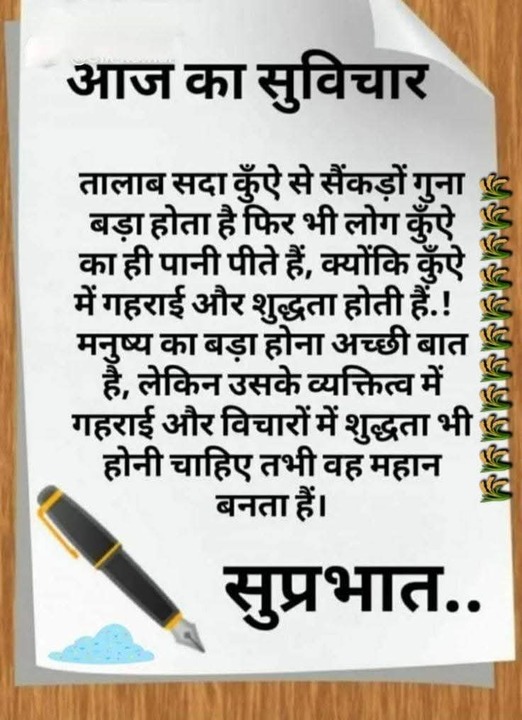 आज का सुविचार
तालाब सदा कुँऐ से सैंकड़ों गुना
बड़ा होता है फिर भी लोग कुँऐ
का ही पानी पीते हैं, क्योंकि कुँऐ
में गहराई और शुद्धता होती हैं.!
मनुष्य का बड़ा होना अच्छी बात
है, लेकिन उसके व्यक्तित्व में
गहराई और विचारों में शुद्धता भी
होनी चाहिए तभी वह महान
बनता हैं।
सुप्रभात..